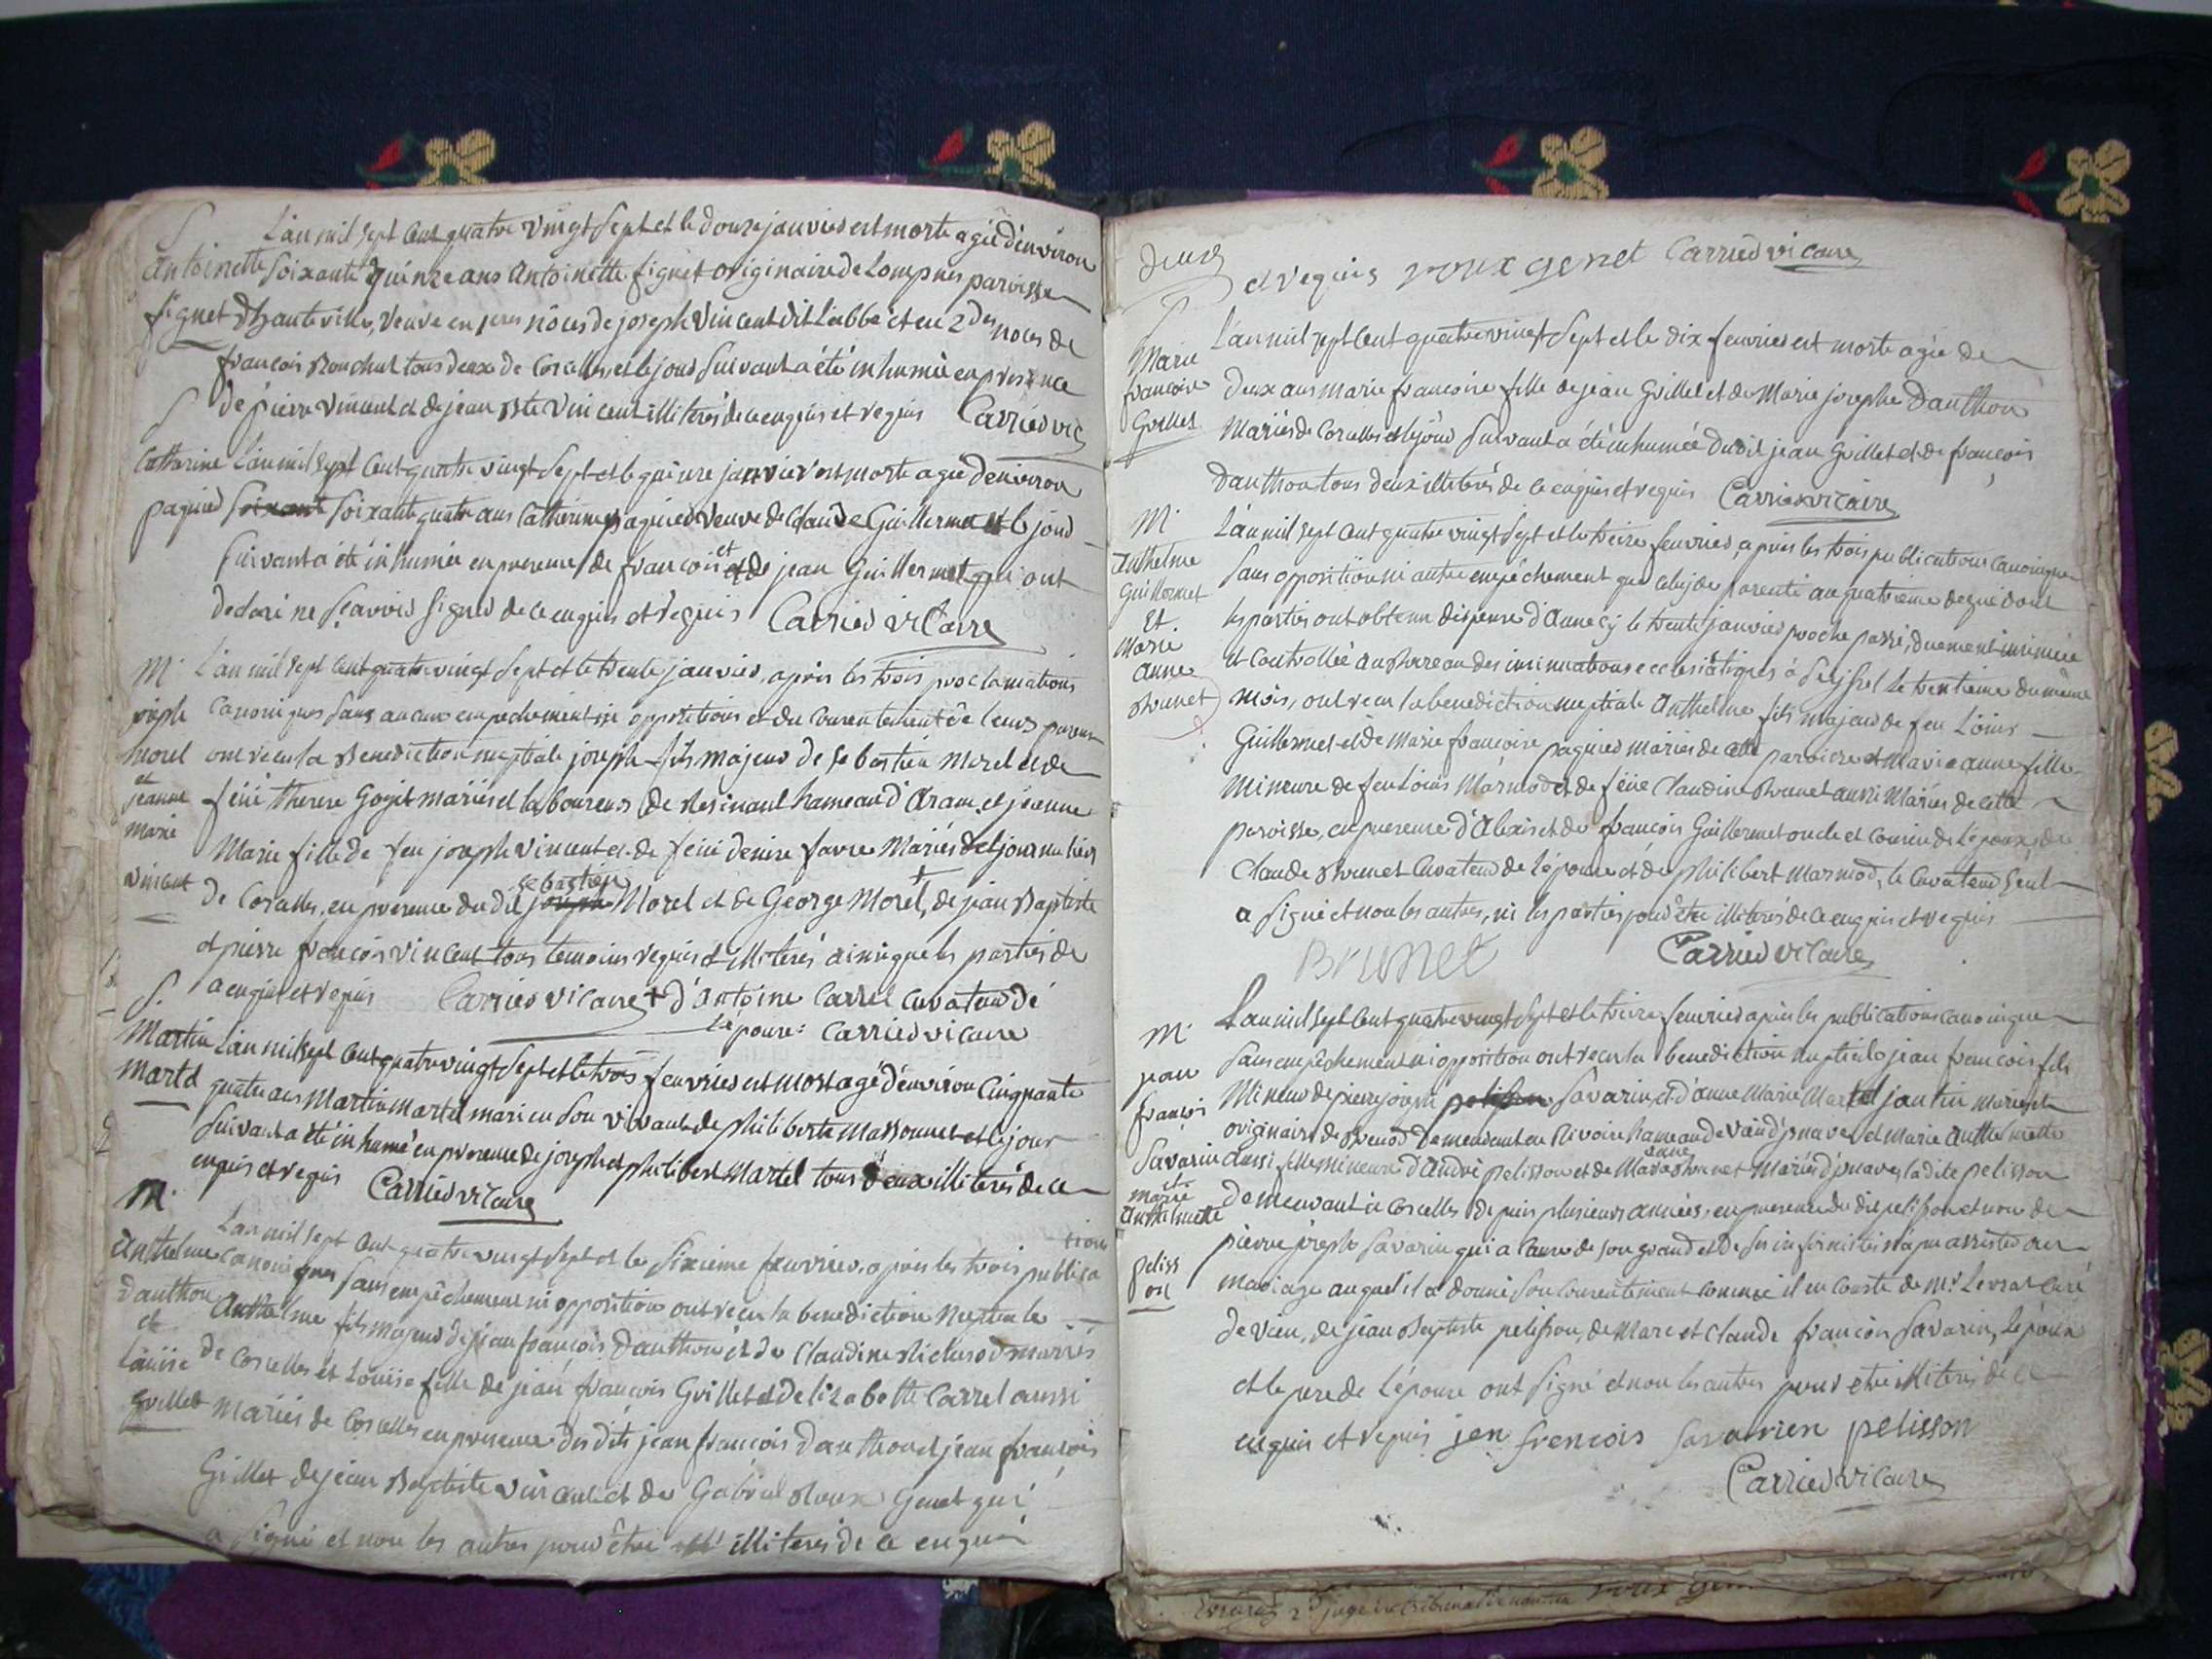 S
Antoinette
fignet
L'an mil sept cent quatre vingt sept et le douze janvier est morte agée d'environ
soixante quinze ans Antoinette fignet originaire de Lompnes paroisse
d'hauteville, veuve en 1eres nôces de joseph Vincent dit L'abbé et en 2des noces de
françois Bouchut tous deux de Corcelles, et le jour suivant a été inhumée en presence
de pierre Vincent et de jean Bte Vincent illiterés de ce enquis et requis Carrier vic
S
Catherine
paquier
L'an mil sept cent quatre vingt sept et le quinze janvier est morte agée d'environ
soixant soixante quatre ans Catherine paquier veuve de Claude Guillermet et le jour
suivant a été inhumée en presence de françois et de jean Guillermet qui ont
declaré ne sçavoir signer de ce enquis et requis Carrier vicaire
M.
joseph
morel
et
jeanne
marie
vincent
L'an mil sept cent quatre vingt sept et le trente janvier, apres les trois proclamations
canoniques sans aucun empechement ni oppositions et du consentement de leurs parens
ont recu la Benediction nuptiale joseph fils majeur de sebastien Morel et de
feüe therese Goyet mariés et laboureurs de Resinant hameau d'Aranc, et jeanne
Marie fille de feu joseph Vincent et de feüe denise favre Mariés et journaliers
de Corcelles, en presence du dit sebastien Morel et de George Morel, + de jean Baptiste
et pierre françois Vincent tous temoins requis et illiterés ainsi que les parties de
ce enquis et requis Carrier vicaire + d'antoine Carrel curateur de
L'épouse: Carrier vicaire
S.
Martin
Martel
L'an mil sept cent quatre vingt sept et le trois fevrier est mort agé d'environ cinquante
quatre ans Martin Martel mari en son vivant de philiberte Massonnet et le jour
suivant a été inhumé en presence de joseph et philibert Martel tous deux illiterés de ce
enquis et requis Carrier vicaire
M.
Anthelme
Danthon
et
Loüise
Guillet
L'an mil sept cent quatre vingt sept et le sixieme fevrier, apres les trois publica
tions
canoniques sans empêchement ni opposition ont recu la benediction Nuptiale
Anthelme fils majeur de jean françois Danthon et de Claudine mariés
de Corcelles et Loüise fille de jean françois Guillet et d'elizabette Carrel aussi
mariés de Corcelles en presence des dits jean françois Danthon et jean françois
Guillet de jean Baptiste Vincent et de Gabriel Roux Genet qui
a signé et non les autres pour être illiterés de ce enquis
deux
et requis roux genet Carrier vicaire
S
Marie
francoise
Guillet
L'an mil sept cent quatre vingt sept et le dix fevrier est morte agée de
deux ans marie francoise fille de jean Guillet et de Marie josephe Danthon
Mariés de Corcelles et le jour suivant a été inhumée dudit jean Guillet et de françois
danthon tous deux illiterés de ce enquis et requis Carrier vicaire
M.
Anthelme
Guillermet
Et
Marie
Anne
Brunet
L'an mil sept cent quatre vingt sept et le treize fevrier, apres les trois publications canoniques
sans opposition ni autre empêchement que celuj de parenté au quatrieme degré dont
les parties ont obtenu dispense d'Annecy le trente janvier proche passé, duement insinuée
et Controllée au Bureau des insinuations ecclesiastiques à Seyssel le trentieme du même
mois, ont recu la benediction nuptiale Anthelme fils majeur de feu Loüis
Guillermet et de Marie francoise paquier mariés de cette paroisse et Marie anne fille
Mineure de feu Loüis Marmod et de feüe Claudine Brunet aussi Mariés de cette
paroisse, en presence d'Alexis et de françois Guillermet oncle et cousin de L'époux, de
Claude Brunet curateur de L'épouse et de philibert Marmod, le curateur seul
a signé et non les autres, ni les parties pour être illiterés de ce enquis et requis
Brunet Carrier vicaire
M.
jean
françois
Savarin
et
marie
Anthelmette
peliss
on
L'an mil sept cent quatre vingt sept et le treize fevrier apres les publications canoniques
sans empêchement ni opposition ont recu la benediction nuptiale jean francois fils
Mineur de pierre joseph Savarin, et d'anne Marie Martel jantin mariés
originaire de Brenod demeurant en Rivoire hameau de et Marie Anthelmette
aussi fille mineure d'André pelisson et de Marie anne Brunet Mariés ladite pelisson
demeurant à Corcelles depuis plusieurs années, en presence du dit pelisson et non de
pierre joseph Savarin qui a cause de son grand et de ses infirmités n'a pu assister au
mariage auquel il a donné son consentement comme il en conste de Mr Levrat curé
de vieu, de jean Baptiste pelisson, de Marc et Claude françois Savarin, L'époux
et le pere de L'épouse ont signé et non les autres pour etre illiterés de ce
enquis et requis jen frencois savarien pelisson
Carrier vicaire